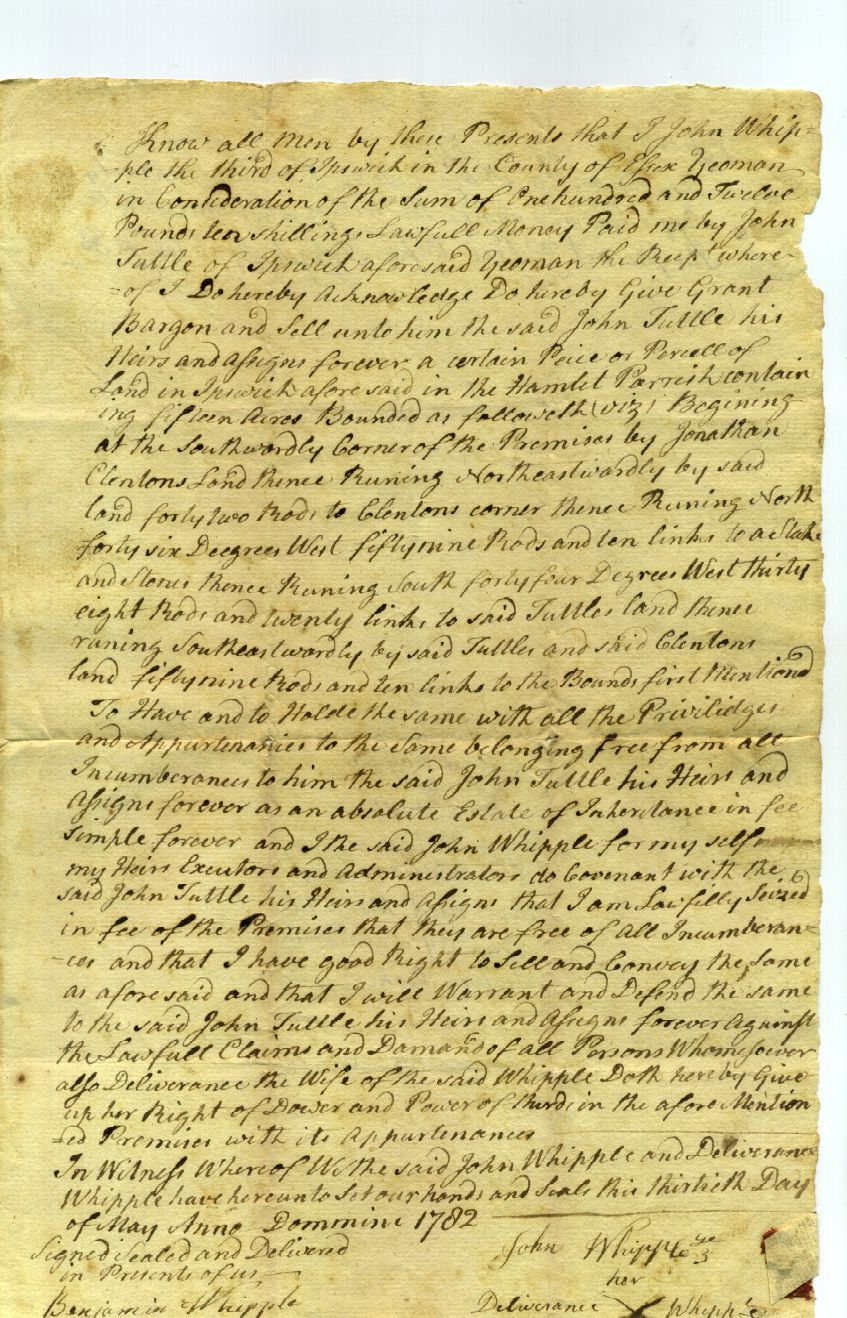 Know all Men by these Presents that I John Whip=
=ple the third of Ipswich in the County of Essex Yeoman
in Consideration of the Sum of One hundred and Twelve
Pounds ten shillings Lawfull Money Paid me by John
Tuttle of Ipswich aforesaid Yeoman the Recpt where=
=of I Do hereby Acknowledge Do hereby Give Grant
Bargon and Sell unto him the said John Tuttle his
Heirs and assigns forever a certain Peice or Percell of
Land in Ipswich aforesaid in the Hamlet Parrish contain
ing fifteen Acres Bounded as followeth (viz) Begining
at the Southwardly Corner of the Premises by Jonathan
Clentons Land thence Runing Northeastwardly by said
land forty two Rods to Clentons corner thence Runing North
forty six Deegrees West fifty nine Rods and ten links to a Stake
and Stones thence Runing South forty four Degrees West thirty
eight Rods and twenty links to said Tuttles land thence
runing Southeastwardly by said Tuttles and said Clentons
land fifty nine Rods and ten links to the Bounds first Mentiond
To Have and to Holde the same with all the Priviledges
and Appurtenancies to the Same belonging free from all
Incumberances to him the said John Tuttle his Heirs and
Assigns forever as an absolute Estate of Inheritance in fee
Simple forever and I the said John Whipple for my self
my Heirs Executors and Administrators do Covenant with the
said John Tuttle his Heirs and Assigns that I am Lawfilly Seized
in fee of the Premises that they are free of all Incumberan=
=ces and that I have good Right to Sell and Convey the Same
as aforesaid and that I will Warrant and Defend the same
to the said John Tuttle his Heirs and Assigns forever Against
the Lawfull Claims and Damand of all Persons Whomesoever
also Deliverance the Wife of the said Whipple Doth hereby Give
up her Right of Dower and Power of thirds in the afore Mention
=ed Premises with its Appurtenances
In Witness Whereof We the said John Whipple and Deliverance
Whipple have hereunto Set our hands and Seals this thirtieth Day
of May Anno Dommini 1782
Signed Sealed and Delivered John Whipple ye 3
in Presents of us her
Benjamin Whipple Deliverance X Whipple